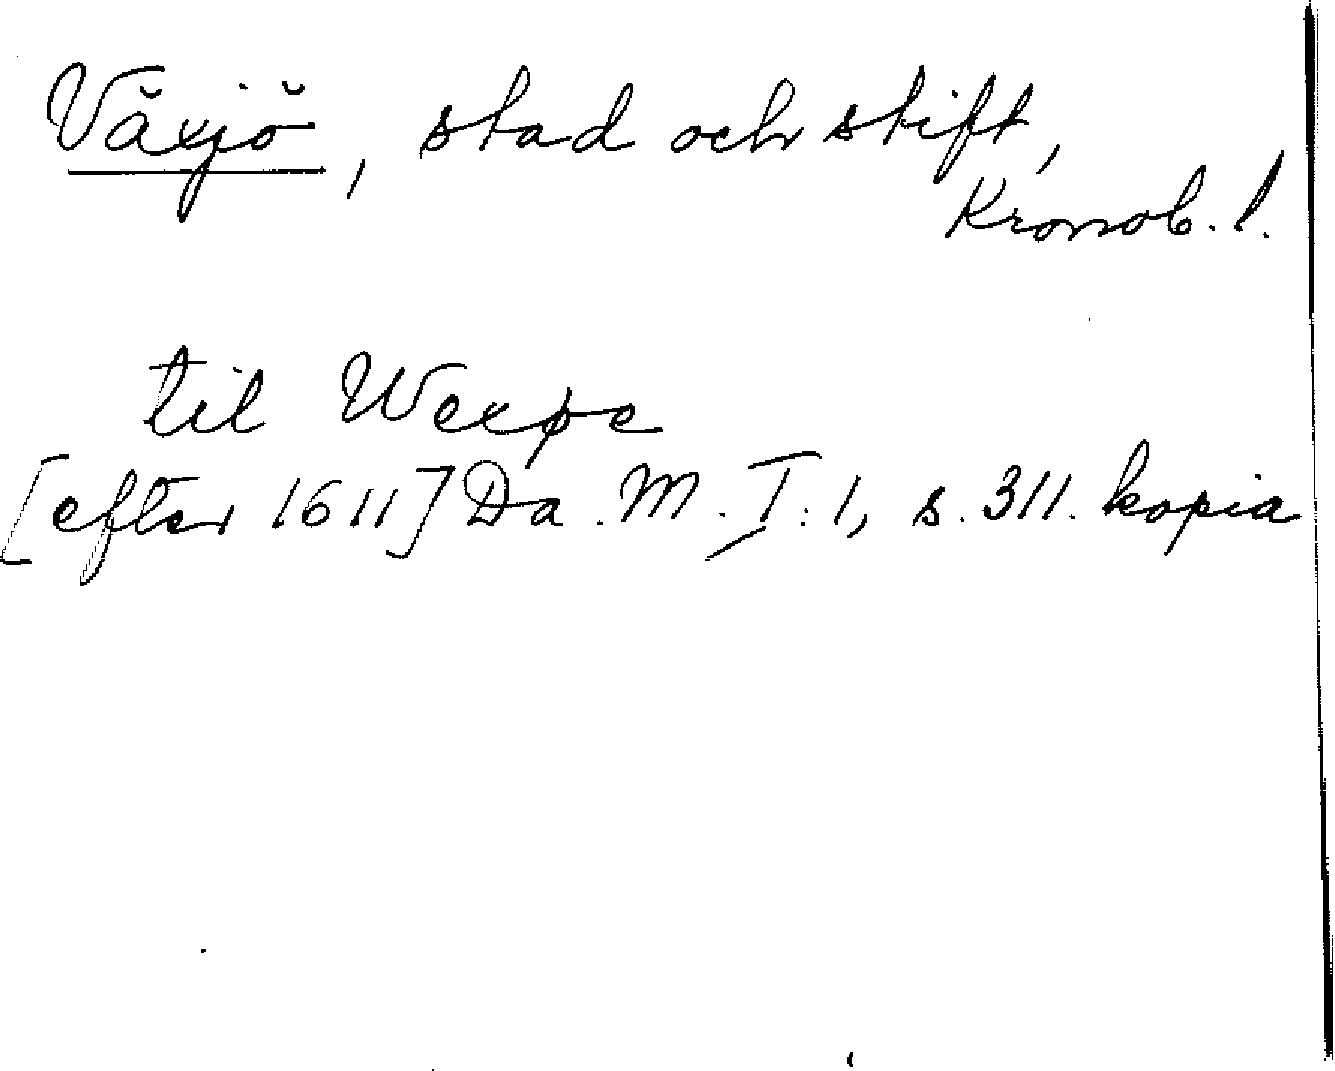 Växjö, stad och stift,
Kronob. l.
til Wexøe
[efter 1611] Da. M. I: 1, s. 311. kopia